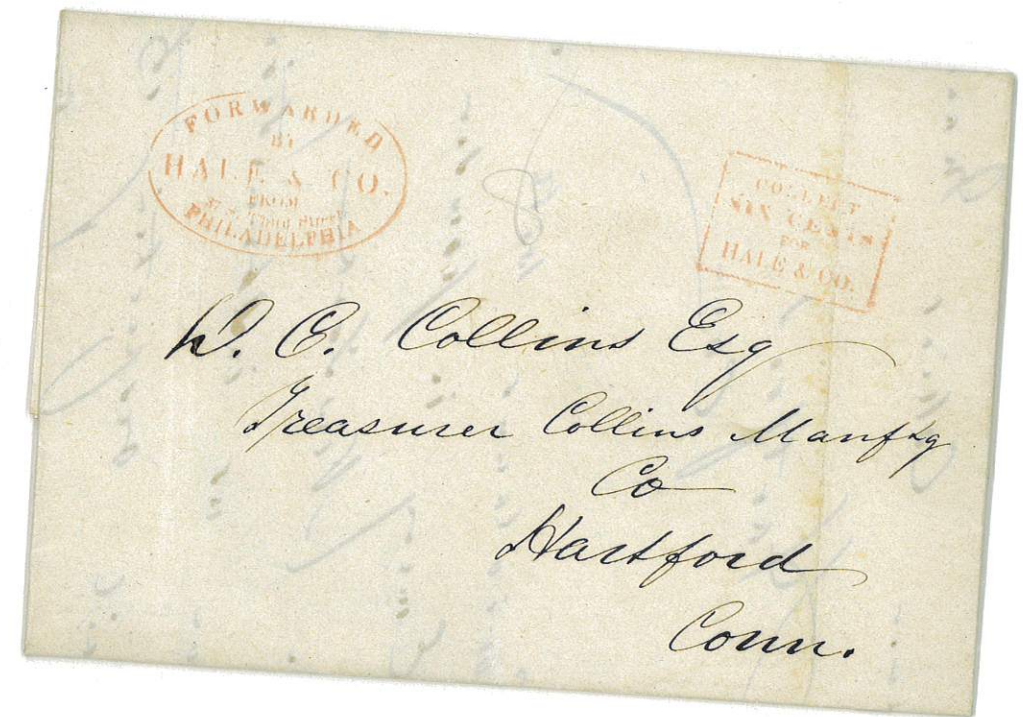 FORWARDED
BY
HALE & CO.
FROM
PHILADELPHIA
COLLECT
SIX CENTS
FOR
HALE & CO.
D. C. Collins Esq
Treasurer Collins Manftg
Co
Hartford
Conn.